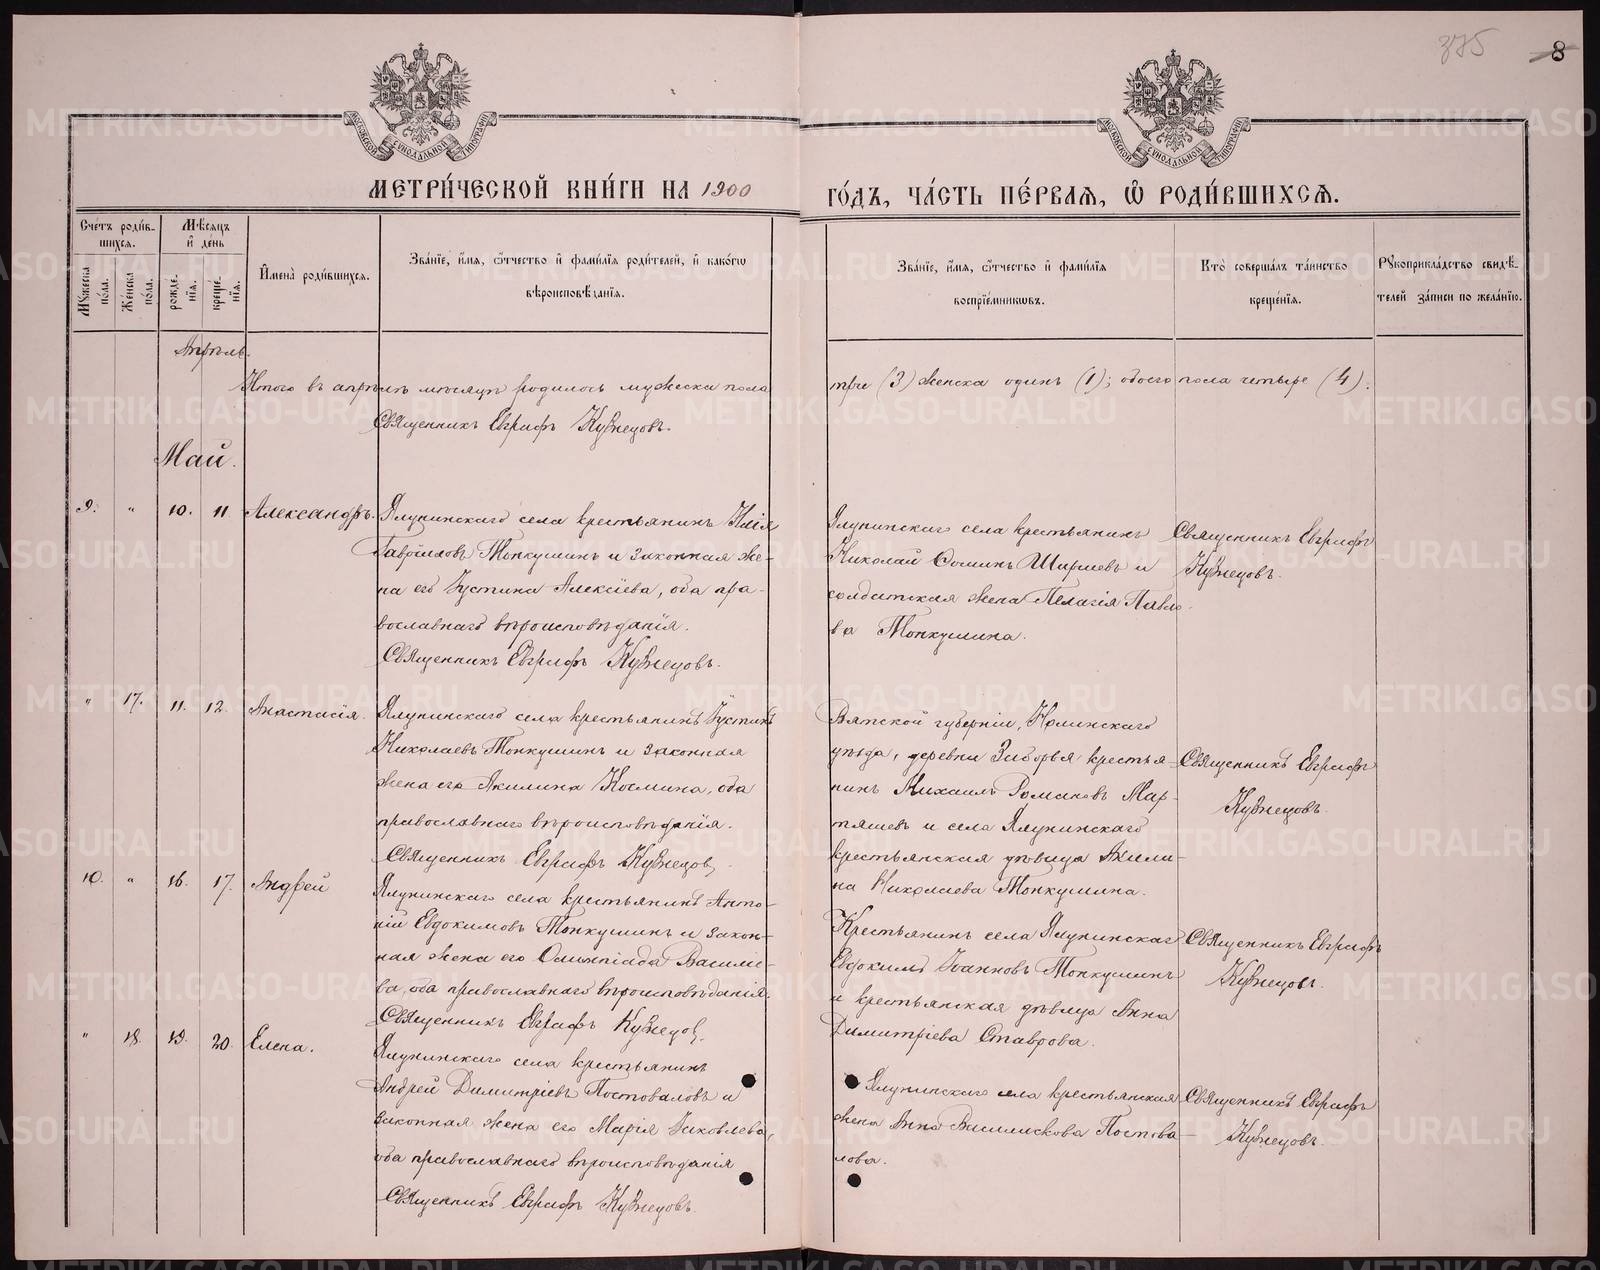 375
8
МЕТРИ́ЧЕСКОЙ КНИ́ГИ НА 1900
ГО́ДЪ, ЧА́СТЬ ПЕ́РВАѦ, Ѽ РОДИ́ВШИХСѦ.
Сче́тъ роди́в-
шихсѧ.
Мꙋжеска по́ла.
Же́нска по́ла.
Мѣ́сѧцъ
и҆ де́нь
рожде́-
нїѧ.
креще́-
нїѧ.
И҆мена̀ роди́вшихсѧ.
Зва́нїе, и҆́мѧ, ѻ҆́тчество и҆ фамѝлїѧ роди́телей, и҆ како́гѡ
вѣроисповѣ́данїѧ.
Зва́нїе, и҆́мѧ, ѻ҆́тчество и҆ фами́лїѧ
воспрїе́мникѡвъ.
Кто̀ соверша́лъ та́инство
креще́нїѧ.
Рꙋкоприкла́дство свидѣ́-
телей за́писи по жела́нїю.
Апрѣль.
Итого въ апрѣлѣ мѣсяцѣ родилось мужеска пола
три (3) женска одинъ (1); обоего пола четыре (4).
Священникъ Евграфъ Кузнецовъ.
Май.
9. " 10. 11. Александръ.
Ялунинскаго села крестьянинъ Илія
Гавріиловъ Топкушинъ и законная же-
на его Іустина Алексіева, оба пра-
вославнаго вѣроисповѣданія.
Священникъ Евграфъ Кузнецовъ.
Ялунинскаго села крестьянинъ
Николай Ѳоминъ Ширшевъ и
солдатская жена Пелагія Павло-
ва Топкушина.
Священникъ Евграфъ
Кузнецовъ.
" 17. 11. 12. Анастасія.
Ялунинскаго села крестьянинъ Іустинъ
Николаевъ Топкушинъ и законная
жена его Акилина Космина, оба
православнаго вѣроисповѣданія.
Священникъ Евграфъ Кузнецовъ.
Вятской губерніи, Нолинскаго
уѣзда, деревни Заборья крестья-
нинъ Михаилъ Романовъ Мар-
тяшевъ и села Ялунинскаго
крестьянская дѣвица Акили-
на Николаева Топкушина.
Священникъ Евграфъ
Кузнецовъ.
10. " 16. 17. Андрей
Ялунинскаго села крестьянинъ Анто-
ній Евдокимовъ Топкушинъ и закон-
ная жена его Олимпіада Василье-
ва, оба православнаго вѣроисповѣданія.
Священникъ Евграфъ Кузнецов.
Крестьянинъ села Ялунинскаго
Евдокимъ Іоанновъ Топкушинъ
и крестьянская дѣвица Анна
Димитріева Ставрова.
Священникъ Евграфъ
Кузнецовъ.
" 18. 19. 20. Елена.
Ялунинскаго села крестьянинъ
Андрей Димитріевъ Постоваловъ и
законная жена его Марія Іаковлева,
оба православнаго вѣроисповѣданія
Священникъ Евграфъ Кузнецовъ.
Ялунинскаго села крестьянская
жена Анна Василискова Постова-
лова.
Священникъ Евграфъ
Кузнецовъ.